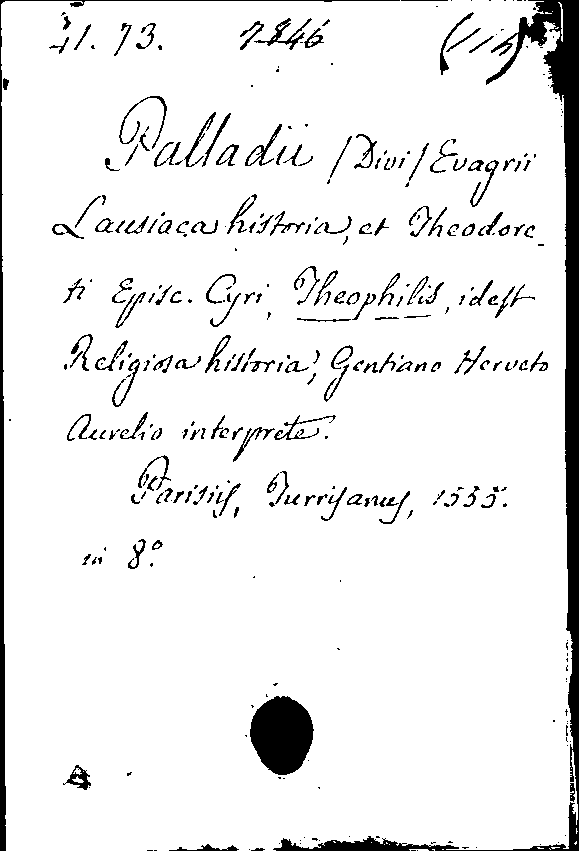 41. 73. 7846
Palladii /Divi/ Evagrii
Lausiaca historia, et Theodore-
ti Episc. Cyri, Theophilis, idest
Religiosa historia, Gentiano Herveto
Aurelio interprete.
Parisiis, Turrisanus, 1555.
in 8º.